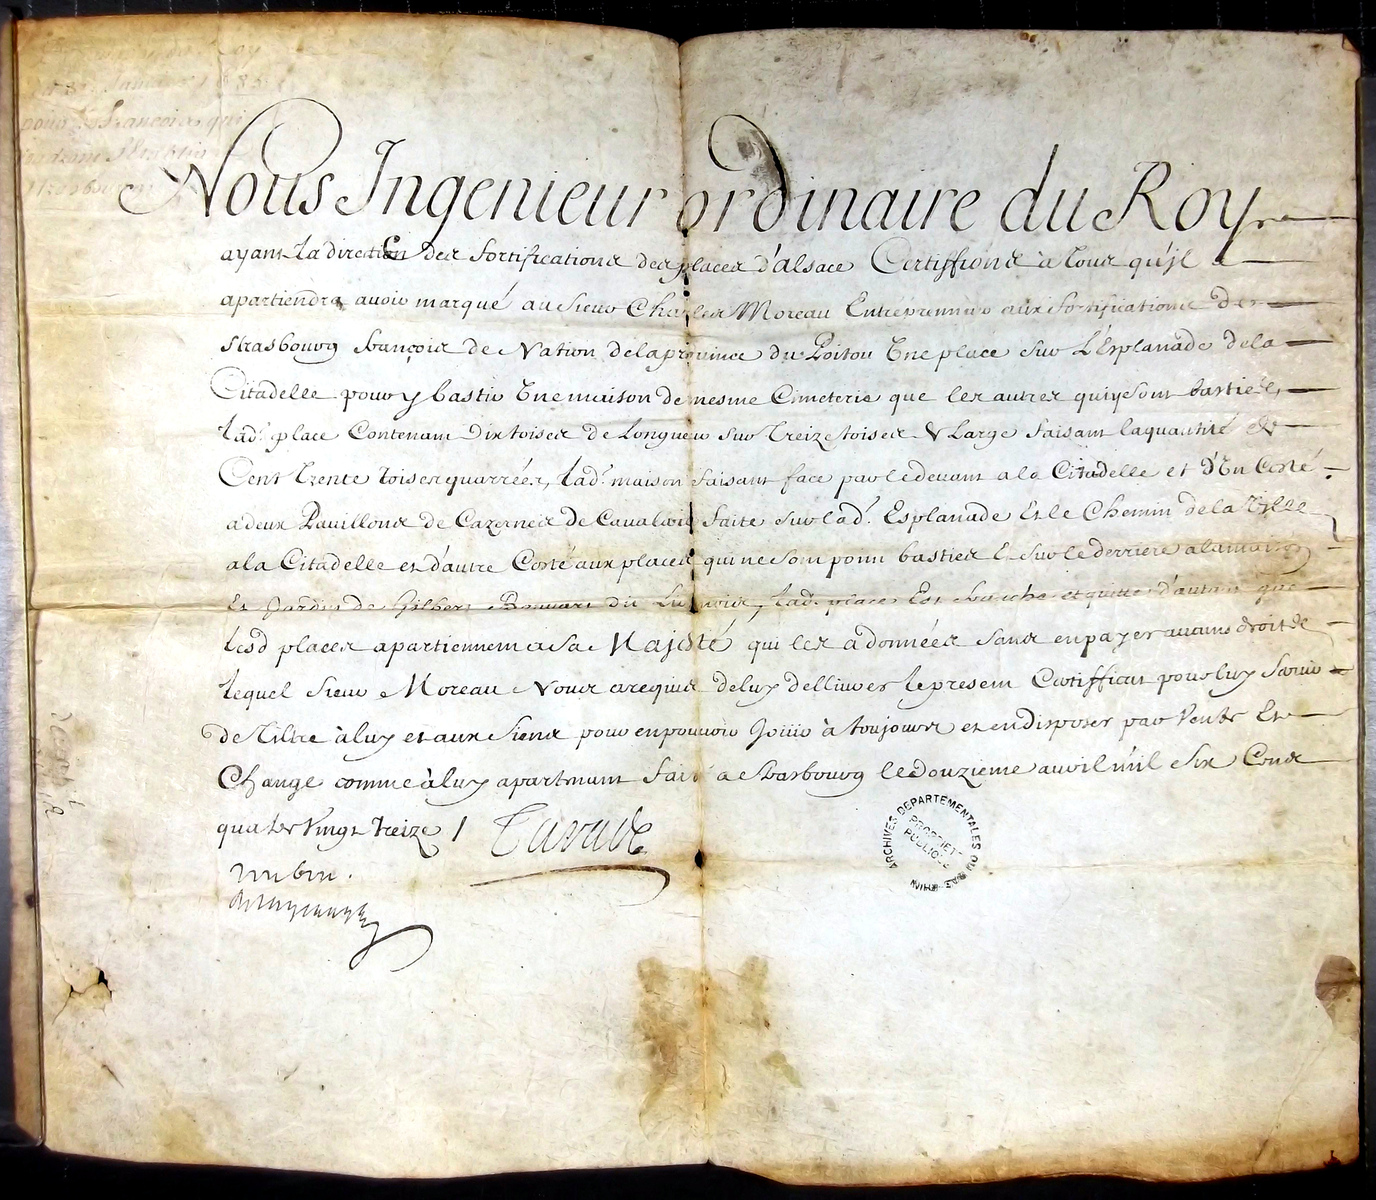 Nous Ingenieur ordinaire du Roy
ayant la direction des fortifications des places d'alsace Certiffions à tous qu'jl
apartiendra avoir marqué au Sieur Charles Moreau Entreprenneur aux fortifications de
Strasbourg françois de Nation de la province du Poitou Vne place sur L'Esplanade de la
Citadelle pour y bastir Vne maison de mesme Cimeterie que les autres qui y sont basties,
lad.e place Contenant Dix toises de Longueur sur treize toises de Large faisant la quantité de
Cent trente toises quarrées, lad.e maison faisant face par le devant a la Citadelle et d'Vn Costé
a deux Pavillons de Cazernes de Cavalerie faite sur lad.e Esplanade Et le Chemin de la Ville
a la Citadelle et d'autre Costé aux places qui ne sont point basties Et sur le derriere a la maison
Et Jardin de Gilbert dit lad.e place Est franche et quitte d'autant que
lesd places apartiennent a Sa Majesté qui les a données sans en payer aucuns droits
lequel Sieur Moreau Nous a requis de luy delliurer le present Certifficat pour luy seruir
de Tiltre à luy et aux Siens pour en pouuoir Jouir à toujours et en disposer par Vente Et
Change comme à luy apartenant fait a Strasbourg le douzieme auril mil Six Cens
quatre Vingt treize / Tarade
ARCHIVES DEPARTEMENTALES DU BAS-RHIN
PROPRIETE PUBLIQUE